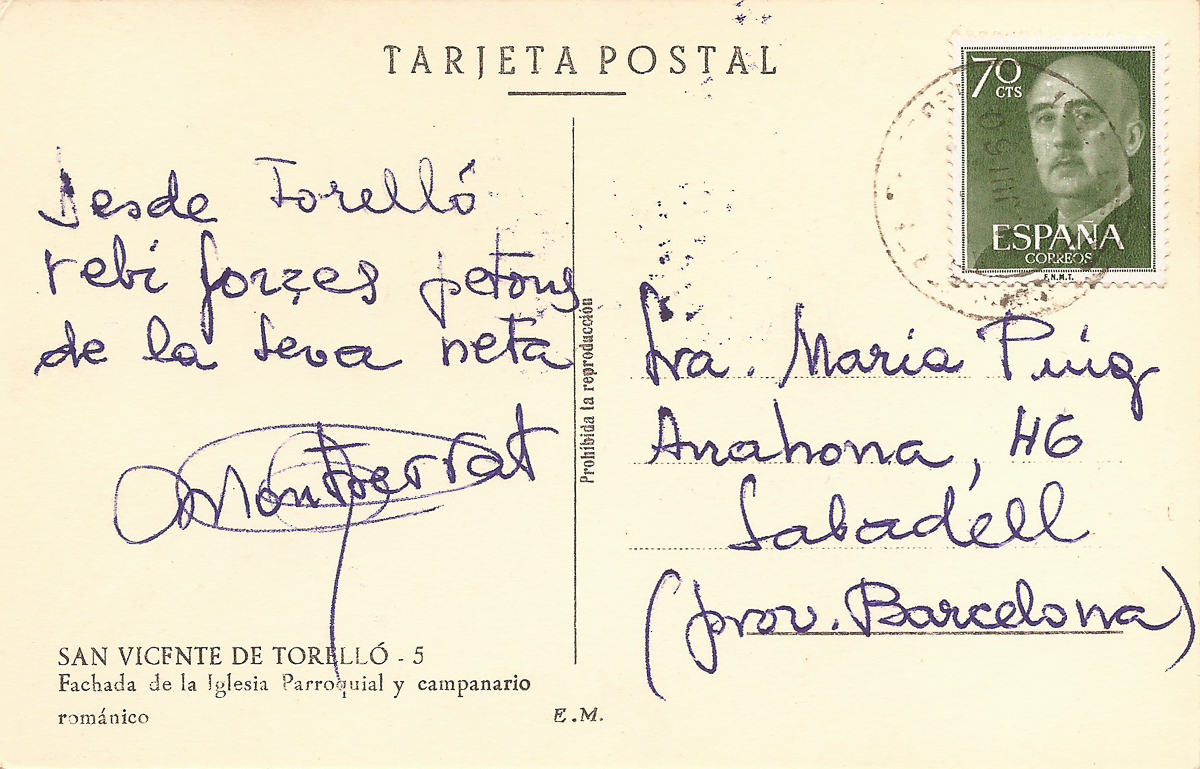 TARJETA POSTAL
Desde Torelló
rebi forçes petons
de la seva neta
Montserrat
SAN VICENTE DE TORELLÓ - 5
Fachada de la Iglesia Parroquial y campanario
románico
E.M.
Prohibida la reproducción
70
CTS
ESPAÑA
CORREOS
F.N.M.T.
Sra. María Puig
Arrahona, 46
Sabadell
(prov. Barcelona)